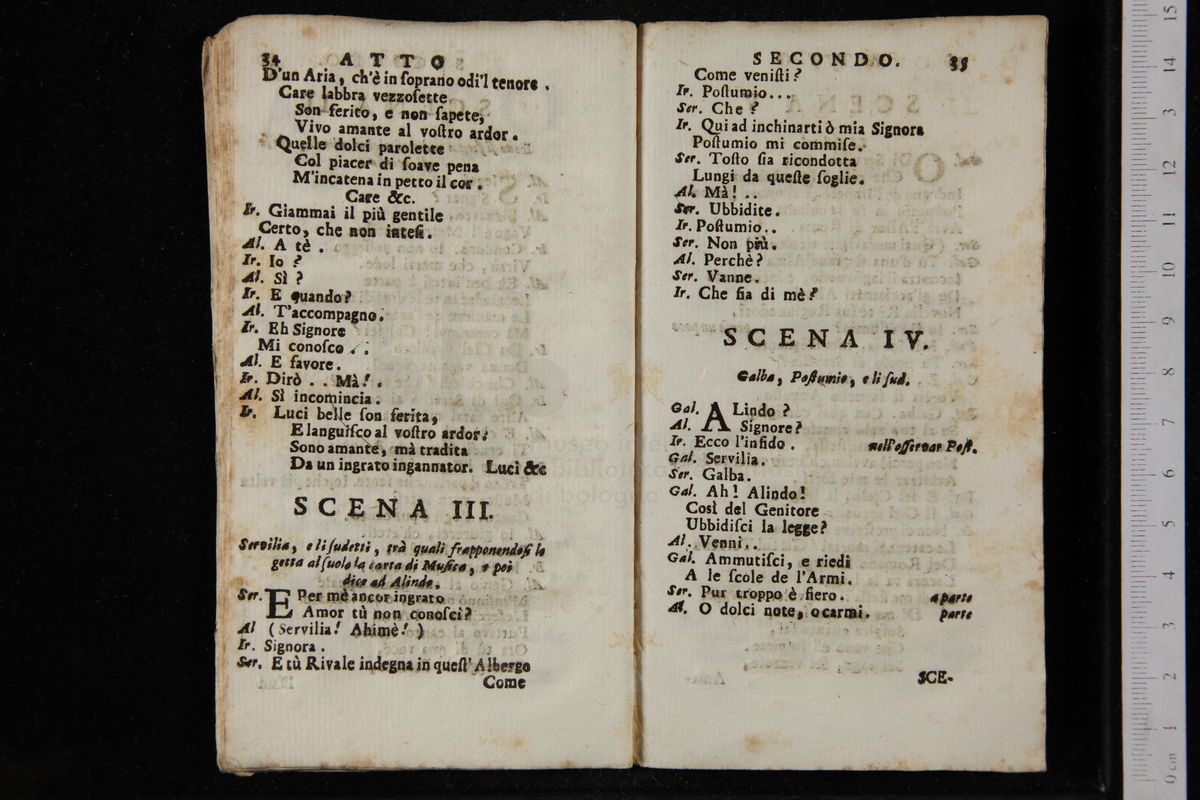 34 ATTO
D'un Aria, ch'è in ſoprano odi'l tenore.
Care labbra vezzoſette
Son ferito, e non ſapete,
Vivo amante al voſtro ardor.
Quelle dolci parolette
Col piacer di ſoave pena
M'incatena in petto il cor.
Care &c.
Ir. Giammai il più gentile
Certo, che non inteſi.
Al. A tè.
Ir. Io?
Al. Sì?
Ir. E quando?
Al. T'accompagno.
Ir. Eh Signore
Mi conoſco ..
Al. E favore.
Ir. Dirò .. Mà!.
Al. Sì incomincia.
Ir. Luci belle ſon ferita,
E languiſco al voſtro ardor:
Sono amante, mà tradita
Da un ingrato ingannator. Luci &c
SCENA III.
Servilia, e li ſudetti, trà quali frapponendoſi le
getta al ſuolo la carta di Muſica, e poi
dice ad Alindo.
Ser. E Per mè ancor ingrato
Amor tù non conoſci?
Al (Servilia! Ahimè!)
Ir. Signora.
Ser. E tù Rivale indegna in queſt'Albergo
Come
SECONDO. 35
Come veniſti?
Ir. Poſtumio...
Ser. Che?
Ir. Qui ad inchinarti ò mia Signora
Poſtumio mi commiſe.
Ser. Toſto ſia ricondotta
Lungi da queſte ſoglie.
Al. Mà! ..
Ser. Ubbidite.
Ir. Poſtumio..
Ser. Non più.
Al. Perchè?
Ser. Vanne.
Ir. Che fia di mè?
SCENA IV.
Galba, Poſtumio, e li ſud.
Gal. ALindo?
Al. Signore?
Ir. Ecco l'infido. nell'oſſervar Poſt.
Gal. Servilia.
Ser. Galba.
Gal. Ah! Alindo!
Così del Genitore
Ubbidiſci la legge?
Al. Venni..
Gal. Ammutiſci, e riedi
A le ſcole de l'Armi.
Ser. Pur troppo è fiero. a parte
Al. O dolci note, o carmi. parte
SCE-